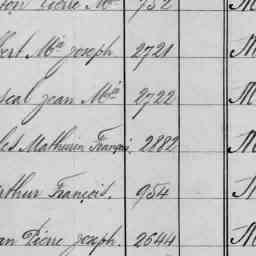 Pierre Mie 752 M
bert Mie Joseph 2721 M
scal Jean Mie 2722 M
les Mathurin François 2882 M
rthur François. 954 M
an Pierre Joseph. 2644 M